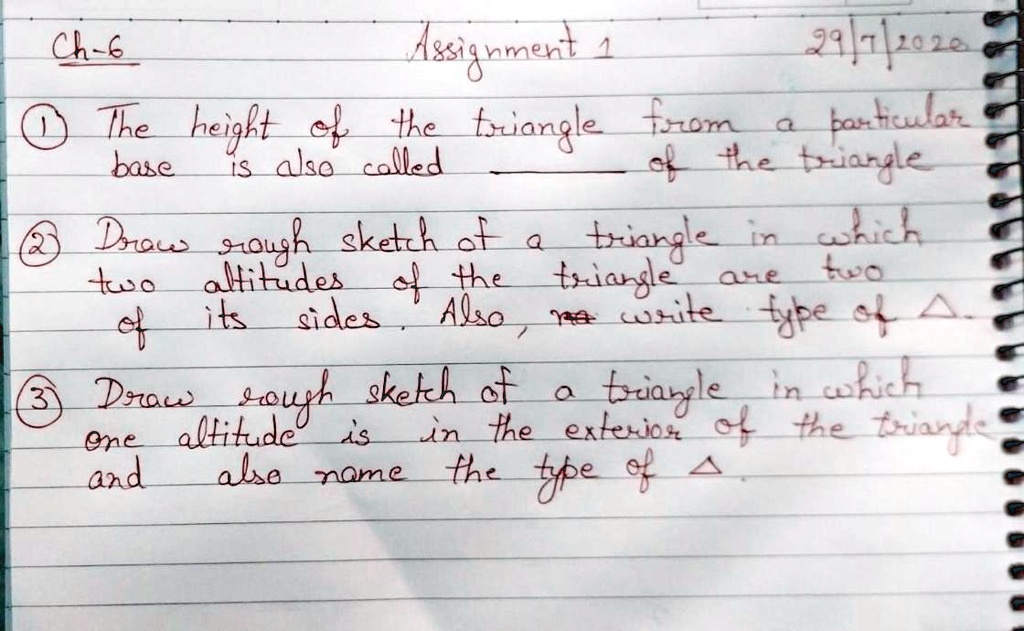 Ch-6 Assignment 1 29/7/2020
① The height of the triangle from a particular
base is also called ______ of the triangle
② Draw rough sketch of a triangle in which
two altitudes of the triangle are two
of its sides. Also, write type of △.
③ Draw rough sketch of a triangle in which
one altitude is in the exterior of the triangle
and also name the type of △.